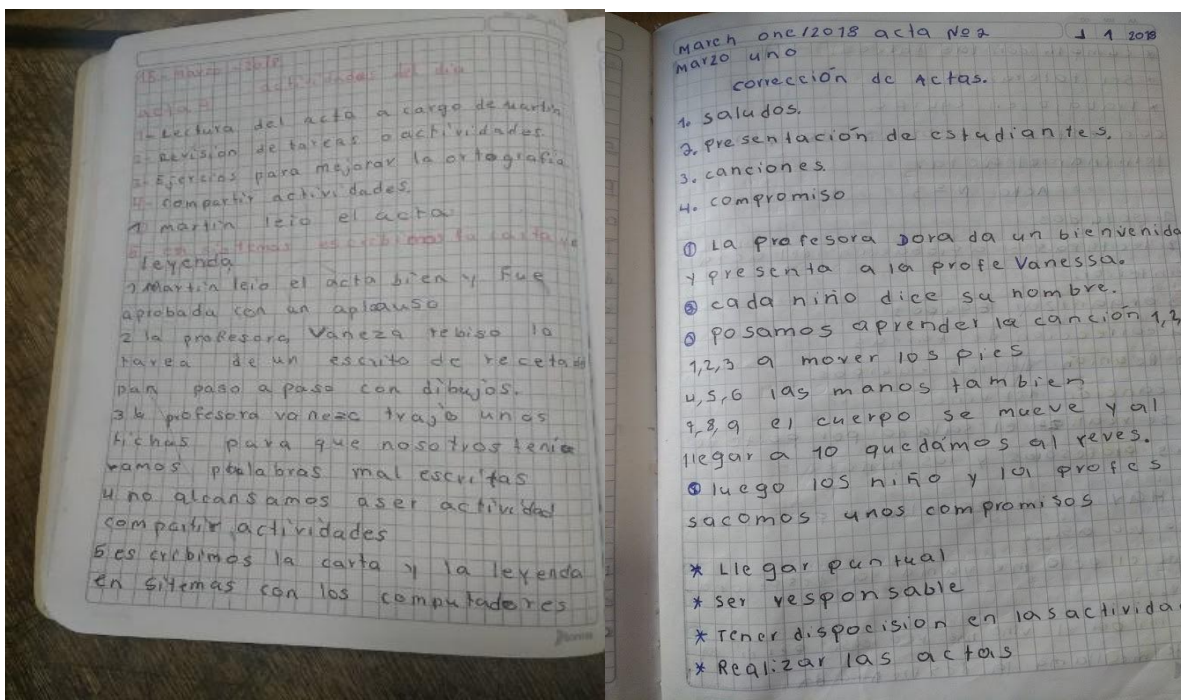 15-marzo-2018
actividades del dia
acta 4
1-Lectura del acta a cargo de martin
2-Revisión de tareas o actividades.
3-Ejercios para mejorar la ortografia
4-compartir actividades.
1 martin leio el acta
5-en sistemas escribimos la carta y
leyenda
1 martin leio el acta bien y Fue
aprobada con an aplauso
2 la profesora Vaneza rebiso la
tarea de un escrito de receta del
pan paso a paso con dibujos.
3 la profesora vaneza trajo unos
fichas para que nosotros tenia
ramos palabras mal escritas
4 no alcansamos aser actividad
compartir actividades
5 es cribimos la carta y la leyenda
en sitemas con los computadores
March one/2018 acta No 2 1 1 2018
Marzo uno
corrección de Actas.
1. saludos.
2. Presentación de estudiantes.
3. canciones.
4. compromiso
① La profesora Dora da un bienvenida
y presenta a la profe Vanessa.
② cada niño dice su nombre.
③ posamos aprender la canción 1,2
1,2,3 a mover los pies
4,5,6 las manos tambien
7,8,9 el cuerpo se mueve y al
llegar a 10 quedamos al reves.
④ luego los niño y la profes
sacomos unos compromisos
* Llegar puntual
* ser responsable
* Tener dispocision en las activida
* Realizar las actas